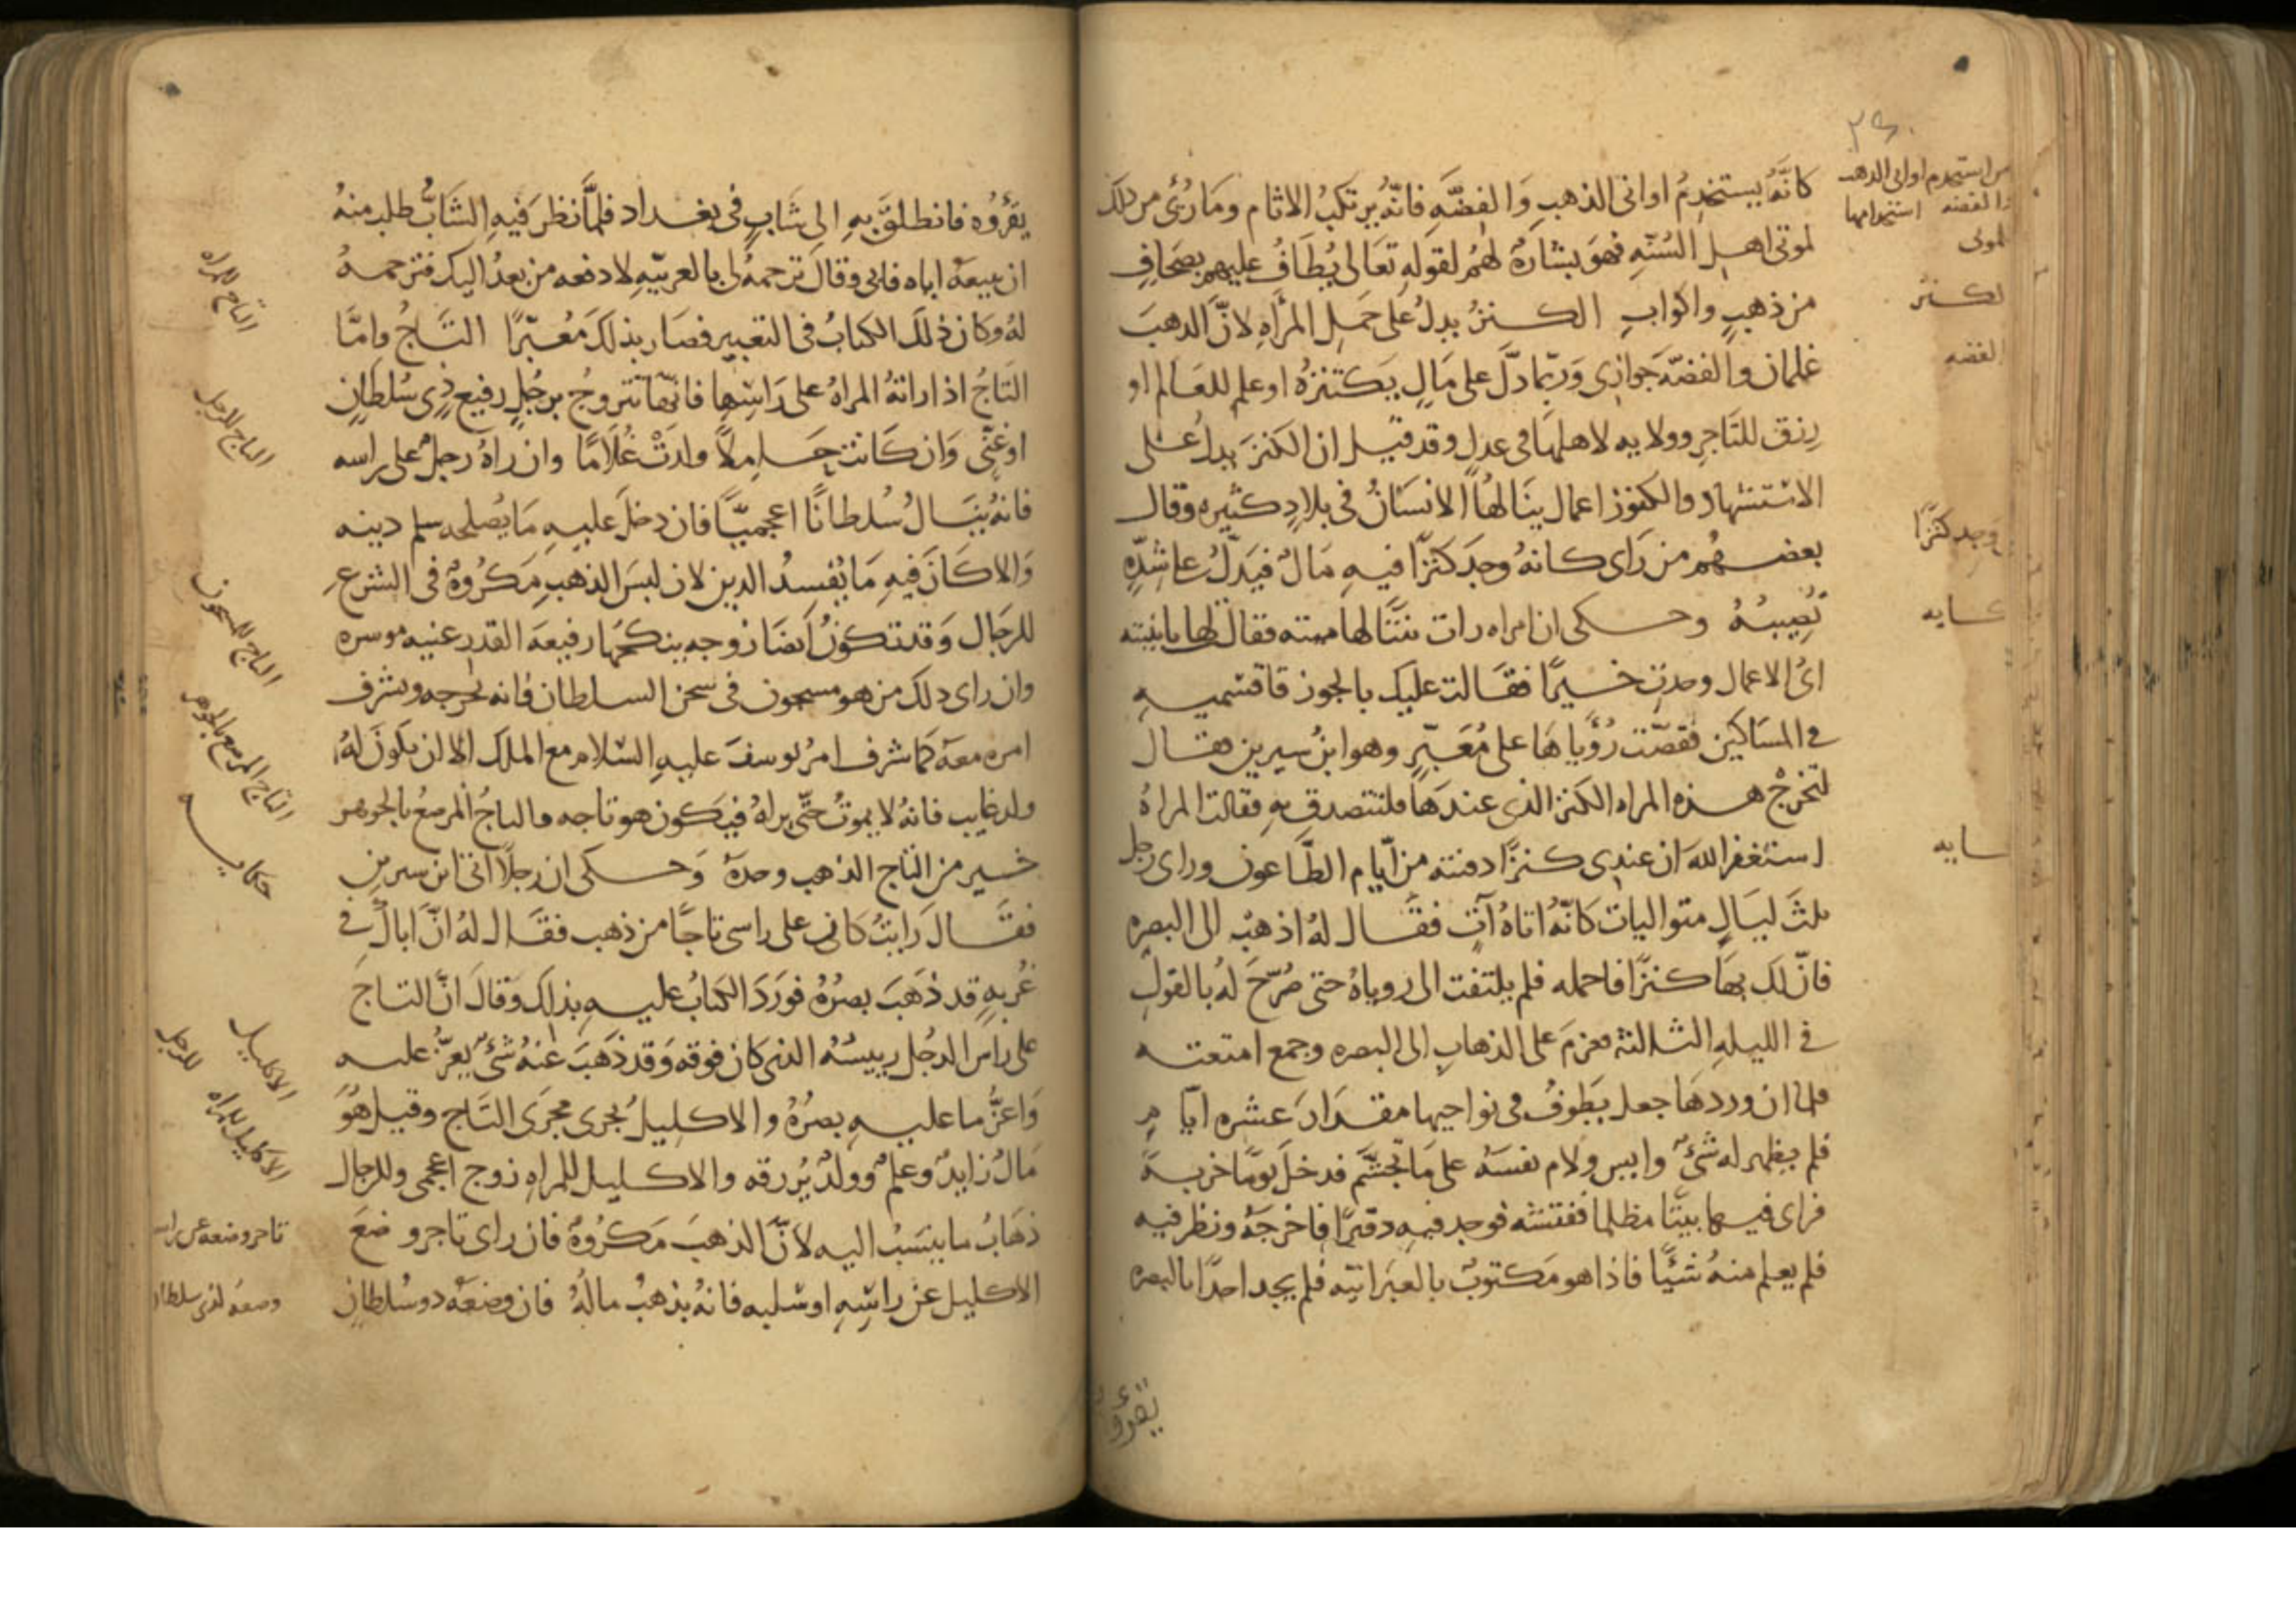 ٢٤٠
من استخدم اوانى الذهب
والفضه استخدامها
للموتى
كانَّهُ يستخدِمُ اوانى الذهبِ وَالفِضَّهِ فانّهُ يرتكبُ الاثام ومَا رُئى من ذلك
لموتى اهلِ السُنّهِ فهوَ بشارَةٌ لهُم لقولهِ تعَالى يُطَافُ عليهم بصَحَافٍ
لكنز
من ذهبٍ واكوابٍ الكنزُ يدلُ على حَملِ المرأهِ لانَّ الذهبَ
الفضه
غلمان والفضّه جوارى وَربّما دلَّ على مَالٍ يَكتنزهُ او علم للعَالم او
رزق للتَاجرِ وولايه لاهلهَا فى عدلٍ وقد قيل ان الكنزَ يدل على
الاستشهاد والكنوز اعمال ينَالهُا الانسَانُ فى بلادٍ كثيره وقال
وَجد كنزًا
بعضهُم من رَاى كانهُ وجَد كنزًا فيهِ مَالٌ فيَدلُّ على شدّهٍ
حكايه
تُصِيبهُ وحكى ان امراه رات بنتًا لها ميته فقال لها يا بنيته
اىُ الاعمال وجدتِ خيرًا فقَالت عليك بالجوز فاقسميهِ
فى المسَاكين فقصّت رُؤياهَا على مُعَبّرٍ وهو ابنُ سيرين فقال
لتخرجْ هذه المراه الكنز الذى عندهَا فلتتصدق بهِ فقالت المراهُ
حكايه
استغفر اللهَ ان عندى كنزًا دفنته من ايّام الطَّاعون وراى رجل
ثلثَ ليَالٍ متواليات كانّهُ اتاهُ آتٍ فقَال لهُ اذهبْ الى البصره
فانّ لك بهَا كنزًا فاحمله فلم يلتفت الى روياهُ حتى صُرّحَ لهُ بالقولِ
فى الليلهِ الثالثة فعزمَ على الذهابِ الى البصره وجمع امتعته
فلما ان وردهَا جعل يَطوفُ فى نواحيها مقدَارَ عشره ايّام
فلم يظهر له شئٌ وايس ولام نفسَهُ على مَا تجشّم فدخلَ يومًا خربةً
فراى فيها بيتًا مظلما ففتشه فوجد فيهِ دفترًا فاخرجَهُ ونظر فيه
فلم يعلم منهُ شيًّا فاذا هو مَكتوبٌ بالعبرَانيّه فلم يجد احدًا بالبصره
يقرؤه
يقرَؤُه فانطلقَ بهِ الى شَابٍ فى بغداد فلمَّا نظرَ فيهِ الشَابُّ طلب منهُ
التاج للمراه
ان يبيعَهُ اياه فابى وقالَ ترجمهُ لى بالعربيّهِ لادفعه من بعدُ اليك فترجمهُ
لهُ وكان ذلكَ الكتابُ فى التعبير فصَار بذلكَ مُعَبّرًا التَاجُ وامَّا
التاج للرجل
التَاجُ اذا راتهُ المراهُ على رَاسِها فانّها تتزوجُ برجُلٍ رفيع ذِى سُلطانٍ
او غنًى وَان كَانت حَامِلاً ولدَتْ غُلَامًا وان راهُ رجلٌ على راسه
فانهُ ينَالُ سُلطانًا اعجميًّا فان دخلَ عليهِ مَا يُصلحه سلم دينه
وَالا كَانَ فيهِ مَا يُفسدُ الدين لان لبسَ الذهبِ مَكرُوهٌ فى الشرعِ
التاج للمسجون
للرجَال وَقد تكونُ ايضَا زوجه ينكحُهَا رفيعة القدر غنيه موسره
وان راى ذلك من هو مسجون فى سجن السلطان فانه يخرجه ويشرف
التاج المرصع بالجوهر
امره معهُ كما شرف امرُ يوسفَ عليهِ السّلام مع الملك الا ان يكونَ لهُ
ولد غايب فانهُ لا يموتُ حتّى يراهُ فيَكون هو تاجه والتاجُ المرصعُ بالجوهر
حكايه
خير من التاج الذهب وحدَهُ وَحكى ان رجلًا اتى ابن سيرين
فقَال رَايتُ كانى على راسى تاجًا من ذهب فقَال لهُ انّ اباكَ فى
غُربهٍ قد ذهَبَ بصرُهُ فورَدَ الكتابُ عليهِ بذلك وقالَ انَّ التاجَ
الاكليل للرجل
على رَاس الرجُل رييسُهُ الذى كان فوقه وَقد ذهَبَ عنهُ شئٌ يعزُّ عليه
الاكليل للمراه
وَاعزُّ ما عليهِ بصرُهُ والاكليلُ يجرى مجرَى التَاجِ وقيل هُوَ
مَالٌ زايدٌ وعلمٌ وولدٌ يُرزقه والاكليل للمراهِ زوج اعجمى وللرجال
تاجر وضعه عن راسه
ذهَابُ ما ينسَبُ اليه لانَّ الذهبَ مَكرُوهٌ فان راى تاجر وضعَ
وضعه لذى سلطان
الاكليل عن راسِهِ او سُلبه فانهُ يذهبُ مالُهُ فان وضعَهُ ذو سُلطانٍ